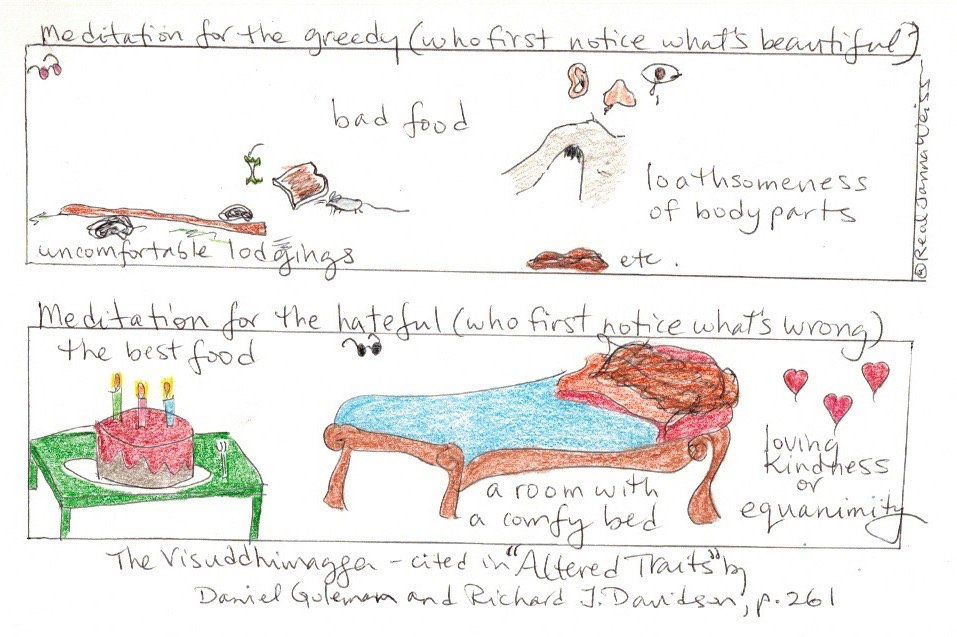 Meditation for the greedy (who first notice what's beautiful)
bad food
loathsomeness
of body parts
uncomfortable lodgings
etc.
©Real Janna Weiss
Meditation for the hateful (who first notice what's wrong)
the best food
loving
kindness
or
equanimity
a room with
a comfy bed
The Visuddhimagga - cited in "Altered Traits" by
Daniel Goleman and Richard J. Davidson, p. 261